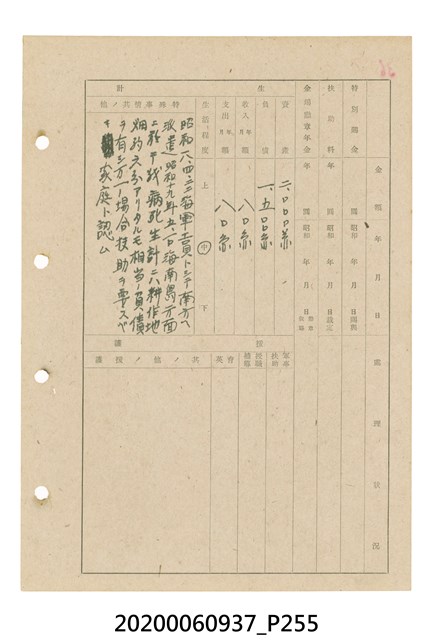 金額 年月日
處理狀況
特別賜金
圓 昭和 年 月 日
扶助料
年 圓 昭和 年 月 日
金鵄勳章年金
年 圓 昭和 年 月 日
生計
資產 二、〇〇〇
負債 一、五〇〇
收入 月年 額 八〇
支出 月年 額 八〇
生活程度 上 中 下
特殊事情其ノ他
昭和八、四、三
海軍工員トシテ南方ヘ
派遣 昭和十九年五、一〇海南島方面
ニ於テ戰病死生計ニハ耕作地
アリタルモ相當ノ負債
ヲ有シ万一ノ場合扶助ヲ要スベ
キ 家庭ト認ム
援護
軍事扶助
授職補導
育英
其ノ他ノ援護
20200060937_P255